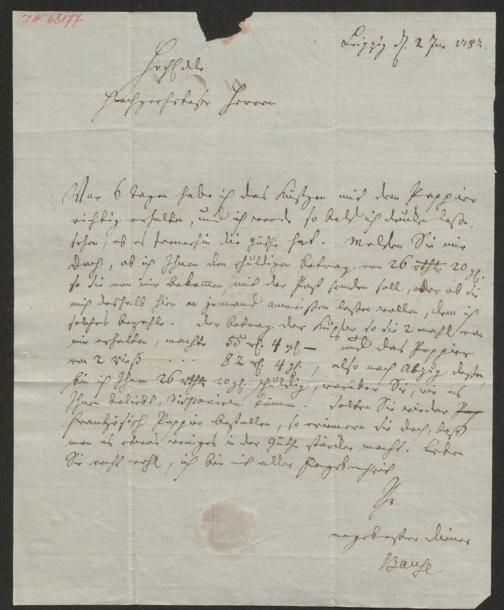 IN 68177
Leipzig d. 2 Jun 178
HochEdle
Hochgeehrteste Herren
Vor 6 tagen habe ich das Küstgen mit dem Pappier
richtig erhalten, und ich werde so bald ich drucken lasse
sehen, ob es immerhin die güthe hat. Melden Sie mir
doch, ob ich Ihnen den schuldigen betrag von 26 rthlr 20 gl.
so Sie von mir bekommen mit der Post senden soll, oder ob Sie
mich deshalb hier an jemand anweisen lassen wollen, dem ich
solches bezahle. Der betrag der Kupfer so Sie 2 mahl von
mir erhalten, machte 55 rl. 4 gl — und das Pappier
von 2 82 rl. 4 gl., also nach Abzug dessen
bin ich Ihnen 26 rthlr 20 gl. schuldig, worüber Sie, wie es
Ihnen beliebt, disponieren können. Sollten Sie wieder
französisch Pappier bestellen, so erinnern Sie doch, daß
man es etwas weniges in der Güthe stärker macht. Leben
Sie recht wohl, ich bin mit aller
Ihr
ergebenster Diener
Bause